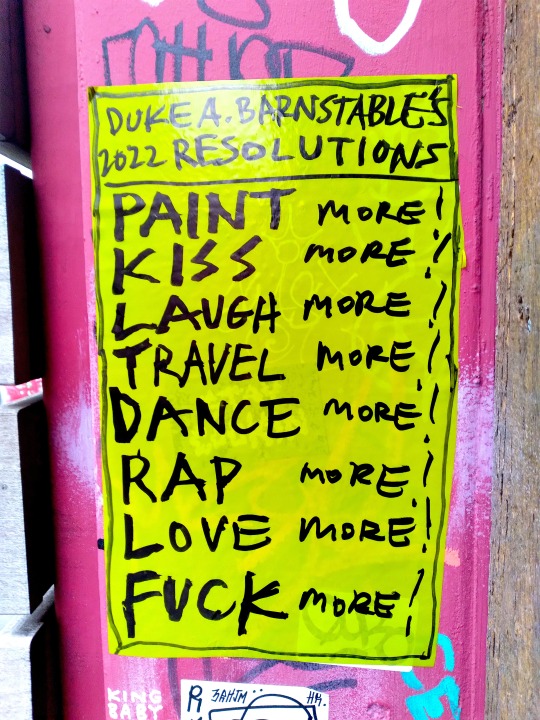 DUKE A. BARNSTABLE'S
2022 RESOLUTIONS
PAINT MORE!
KISS MORE!
LAUGH MORE!
TRAVEL MORE!
DANCE MORE!
RAP MORE!
LOVE MORE!
FUCK MORE!
KING
BABY